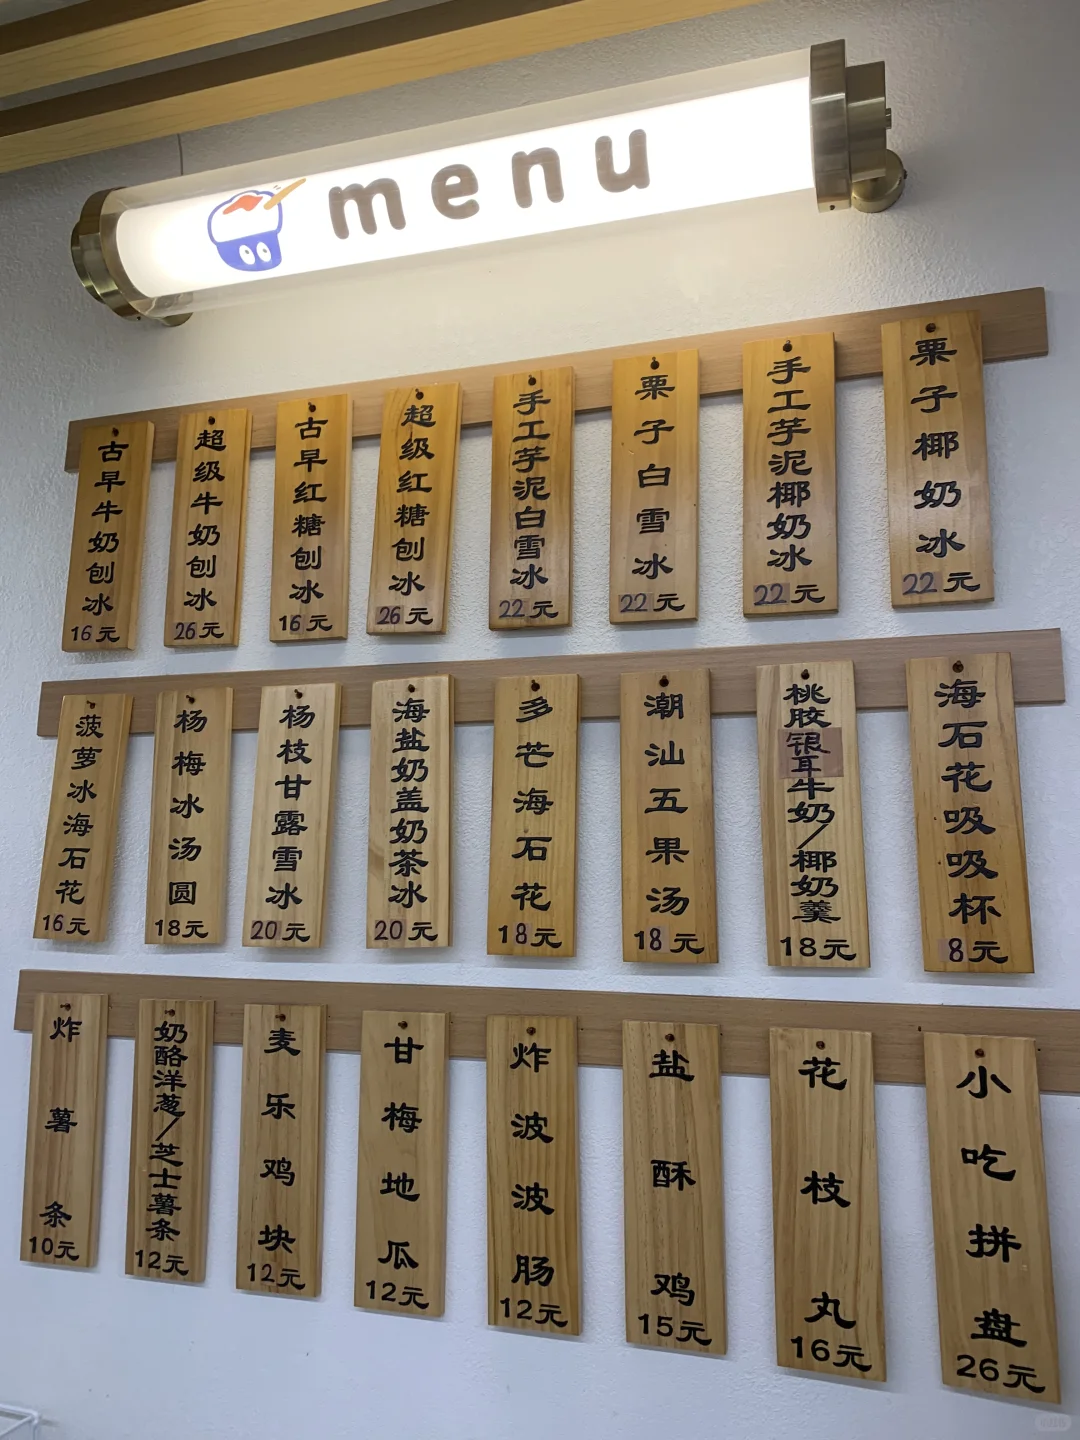 menu
古早牛奶刨冰
16元
超级牛奶刨冰
26元
古早红糖刨冰
16元
超级红糖刨冰
26元
手工芋泥白雪冰
22元
栗子白雪冰
22元
手工芋泥椰奶冰
22元
栗子椰奶冰
22元
菠萝冰海石花
16元
杨梅冰汤圆
18元
杨枝甘露雪冰
20元
海盐奶盖奶茶冰
20元
多芒海石花
18元
潮汕五果汤
18元
桃胶银耳牛奶/椰奶羹
18元
海石花吸吸杯
8元
炸薯条
10元
奶酪洋葱/芝士薯条
12元
麦乐鸡块
12元
甘梅地瓜
12元
炸波波肠
12元
盐酥鸡
15元
花枝丸
16元
小吃拼盘
26元